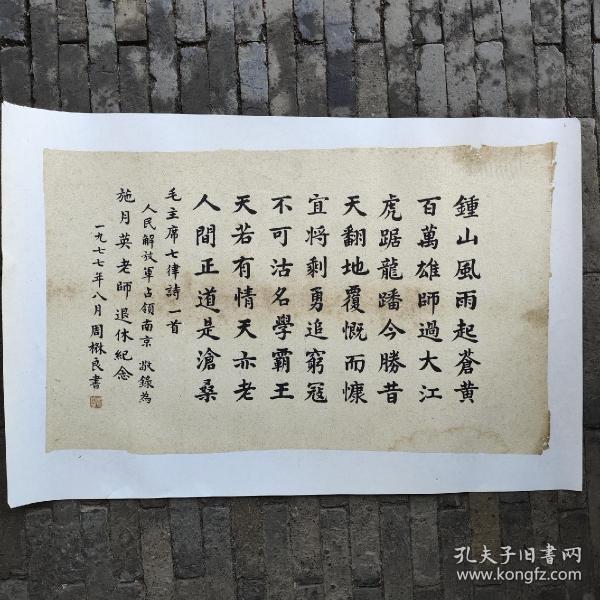 鍾山風雨起蒼黄
百萬雄師過大江
虎踞龍蹯今勝昔
天翻地覆慨而慷
宜将剩勇追窮寇
不可沽名學霸王
天若有情天亦老
人間正道是滄桑
毛主席七律詩一首
人民解放軍占領南京 敬錄為
施月英老師退休紀念
一九七七年八月周楙良書
孔夫子旧書网
www.kongfz.com